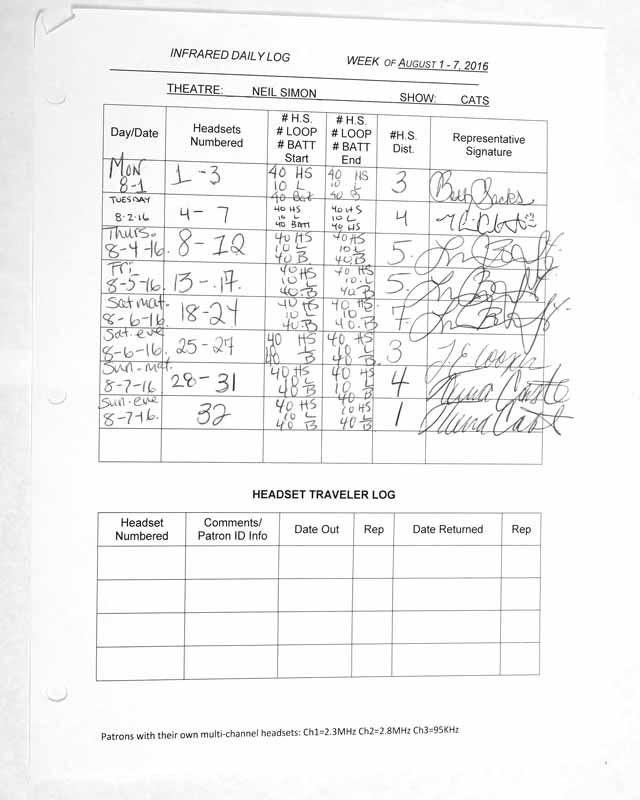 INFRARED DAILY LOG WEEK OF AUGUST 1 - 7, 2016
THEATRE: NEIL SIMON SHOW: CATS
Day/Date Headsets Numbered # H.S. # LOOP # BATT Start # H.S. # LOOP # BATT End #H.S. Dist. Representative Signature
Mon 8-1 1-3 40 HS 10 L 40 Bat 40 HS 10 L 40 B 3 Beth Sacks
TUESDAY 8-2-16 4-7 40 HS 10 L 40 BATT 40 HS 10 L 40 HS 4
Thurs. 8-4-16. 8-12 40 HS 10 L 40 B 40 HS 10 L 40 B 5.
Fri, 8-5-16. 13-.17. 40 HS 10 L 40.B 40 HS 10 L 40.B 5.
Sat mat. 8-6-16. 18-24 40 HS 10 L 40.B 40 HS 10 L 40.B 7.
Sat. eve 8-6-16. 25-27 40 HS 10 L 40 B 40 HS 10 L 40 B 3
Sun-mat. 8-7-16 28-31 40 HS 10 L 40 B 40 HS 10 L 40 B 4
Sun-eve 8-7-16. 32 40 HS 10 L 40 B 40 HS 10 HS 40 B 1
HEADSET TRAVELER LOG
Headset Numbered Comments/ Patron ID Info Date Out Rep Date Returned Rep
Patrons with their own multi-channel headsets: Ch1=2.3MHz Ch2=2.8MHz Ch3=95KHz